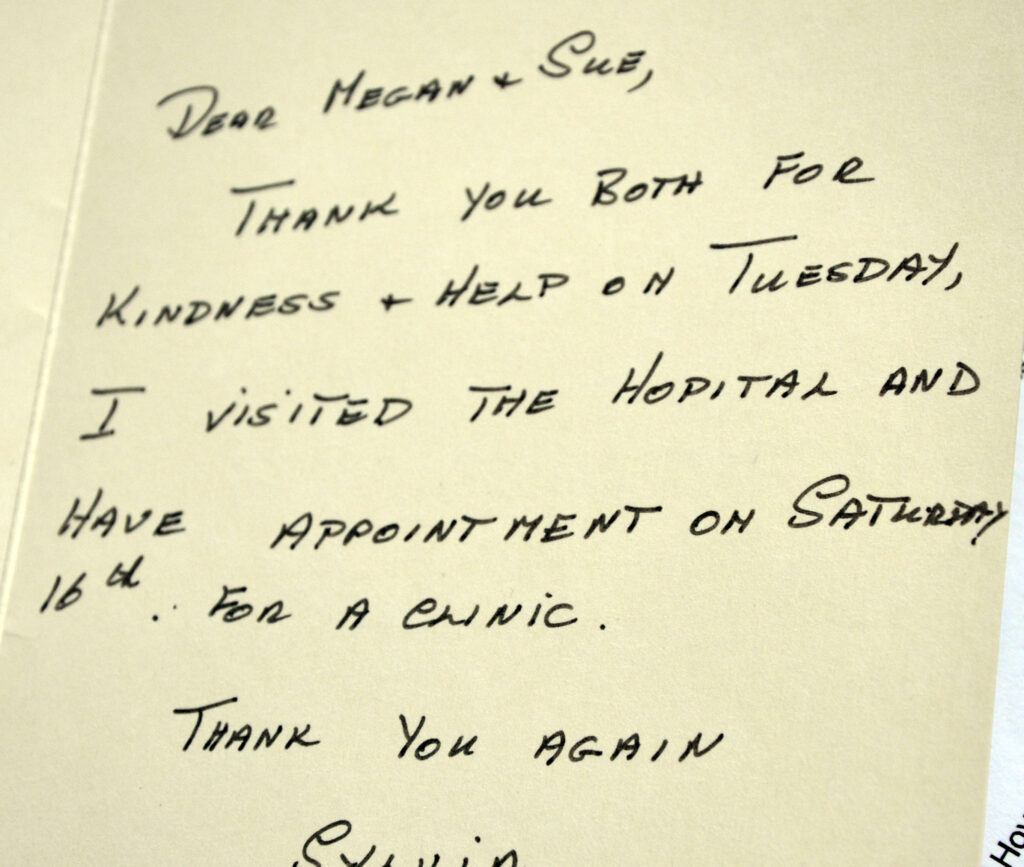 Dear Megan + Sue,
Thank you both for
kindness + help on Tuesday,
I visited the Hopital and
have appointment on Saturday
16th. for a clinic.
Thank you again
Sylvia
How